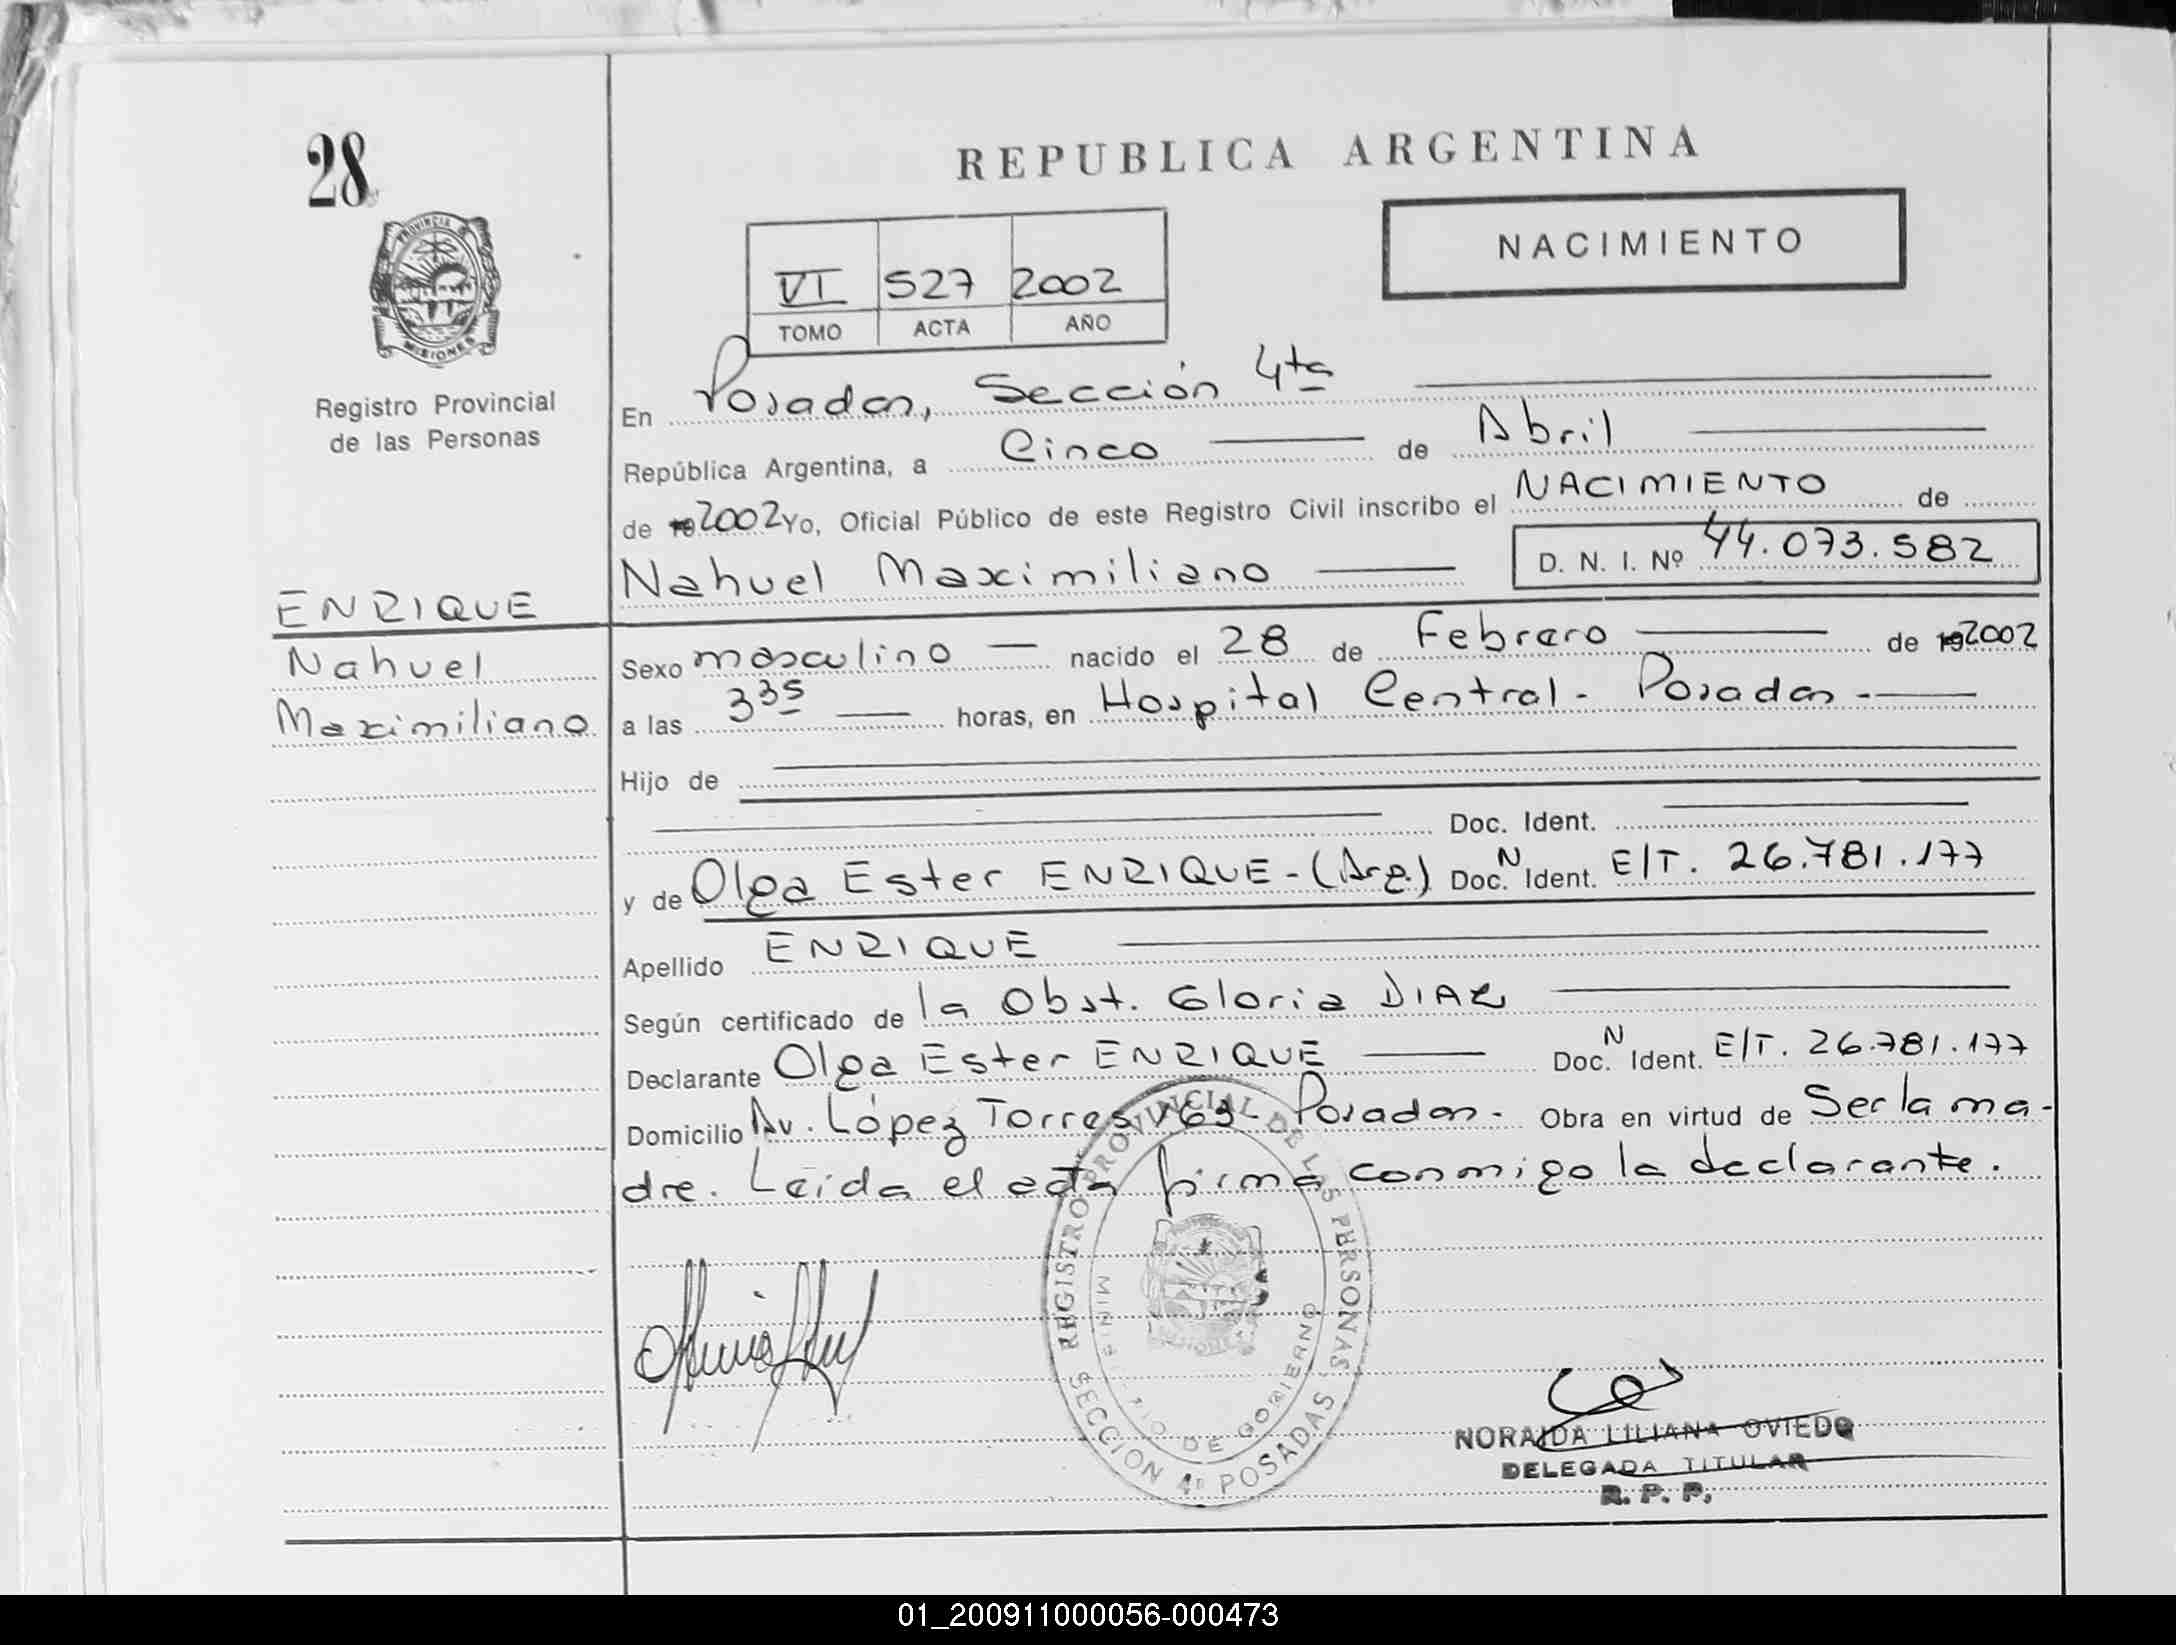 28
PROVINCIA
MISIONES
Registro Provincial
de las Personas
REPUBLICA ARGENTINA
VI 527 2002
TOMO ACTA AÑO
NACIMIENTO
En Posadas, Sección 4ta
República Argentina, a Cinco de Abril
de 19 2002 Yo, Oficial Público de este Registro Civil inscribo el NACIMIENTO de
Nahuel Maximiliano D. N. I. Nº 44.073.582
ENRIQUE
Nahuel
Maximiliano
Sexo masculino nacido el 28 de Febrero de 19 2002
a las 3 35 horas, en Hospital Central - Posadas -
Hijo de
Doc. Ident.
y de Olga Ester ENRIQUE - (Arg.) Doc. N Ident. E/T. 26.781.177
Apellido ENRIQUE
Según certificado de la Obst. Gloria DIAZ
Declarante Olga Ester ENRIQUE Doc. N Ident. E/T. 26.781.177
Domicilio Av. López Torres 1763 - Posadas - Obra en virtud de Ser la ma-
dre. Leida el acta firma conmigo la declarante.
REGISTRO PROVINCIAL DE LAS PERSONAS
MINISTERIO DE GOBIERNO
SECCION 4º POSADAS
NORAIDA LILIANA OVIEDO
DELEGADA TITULAR
R. P. P.
01_200911000056-000473